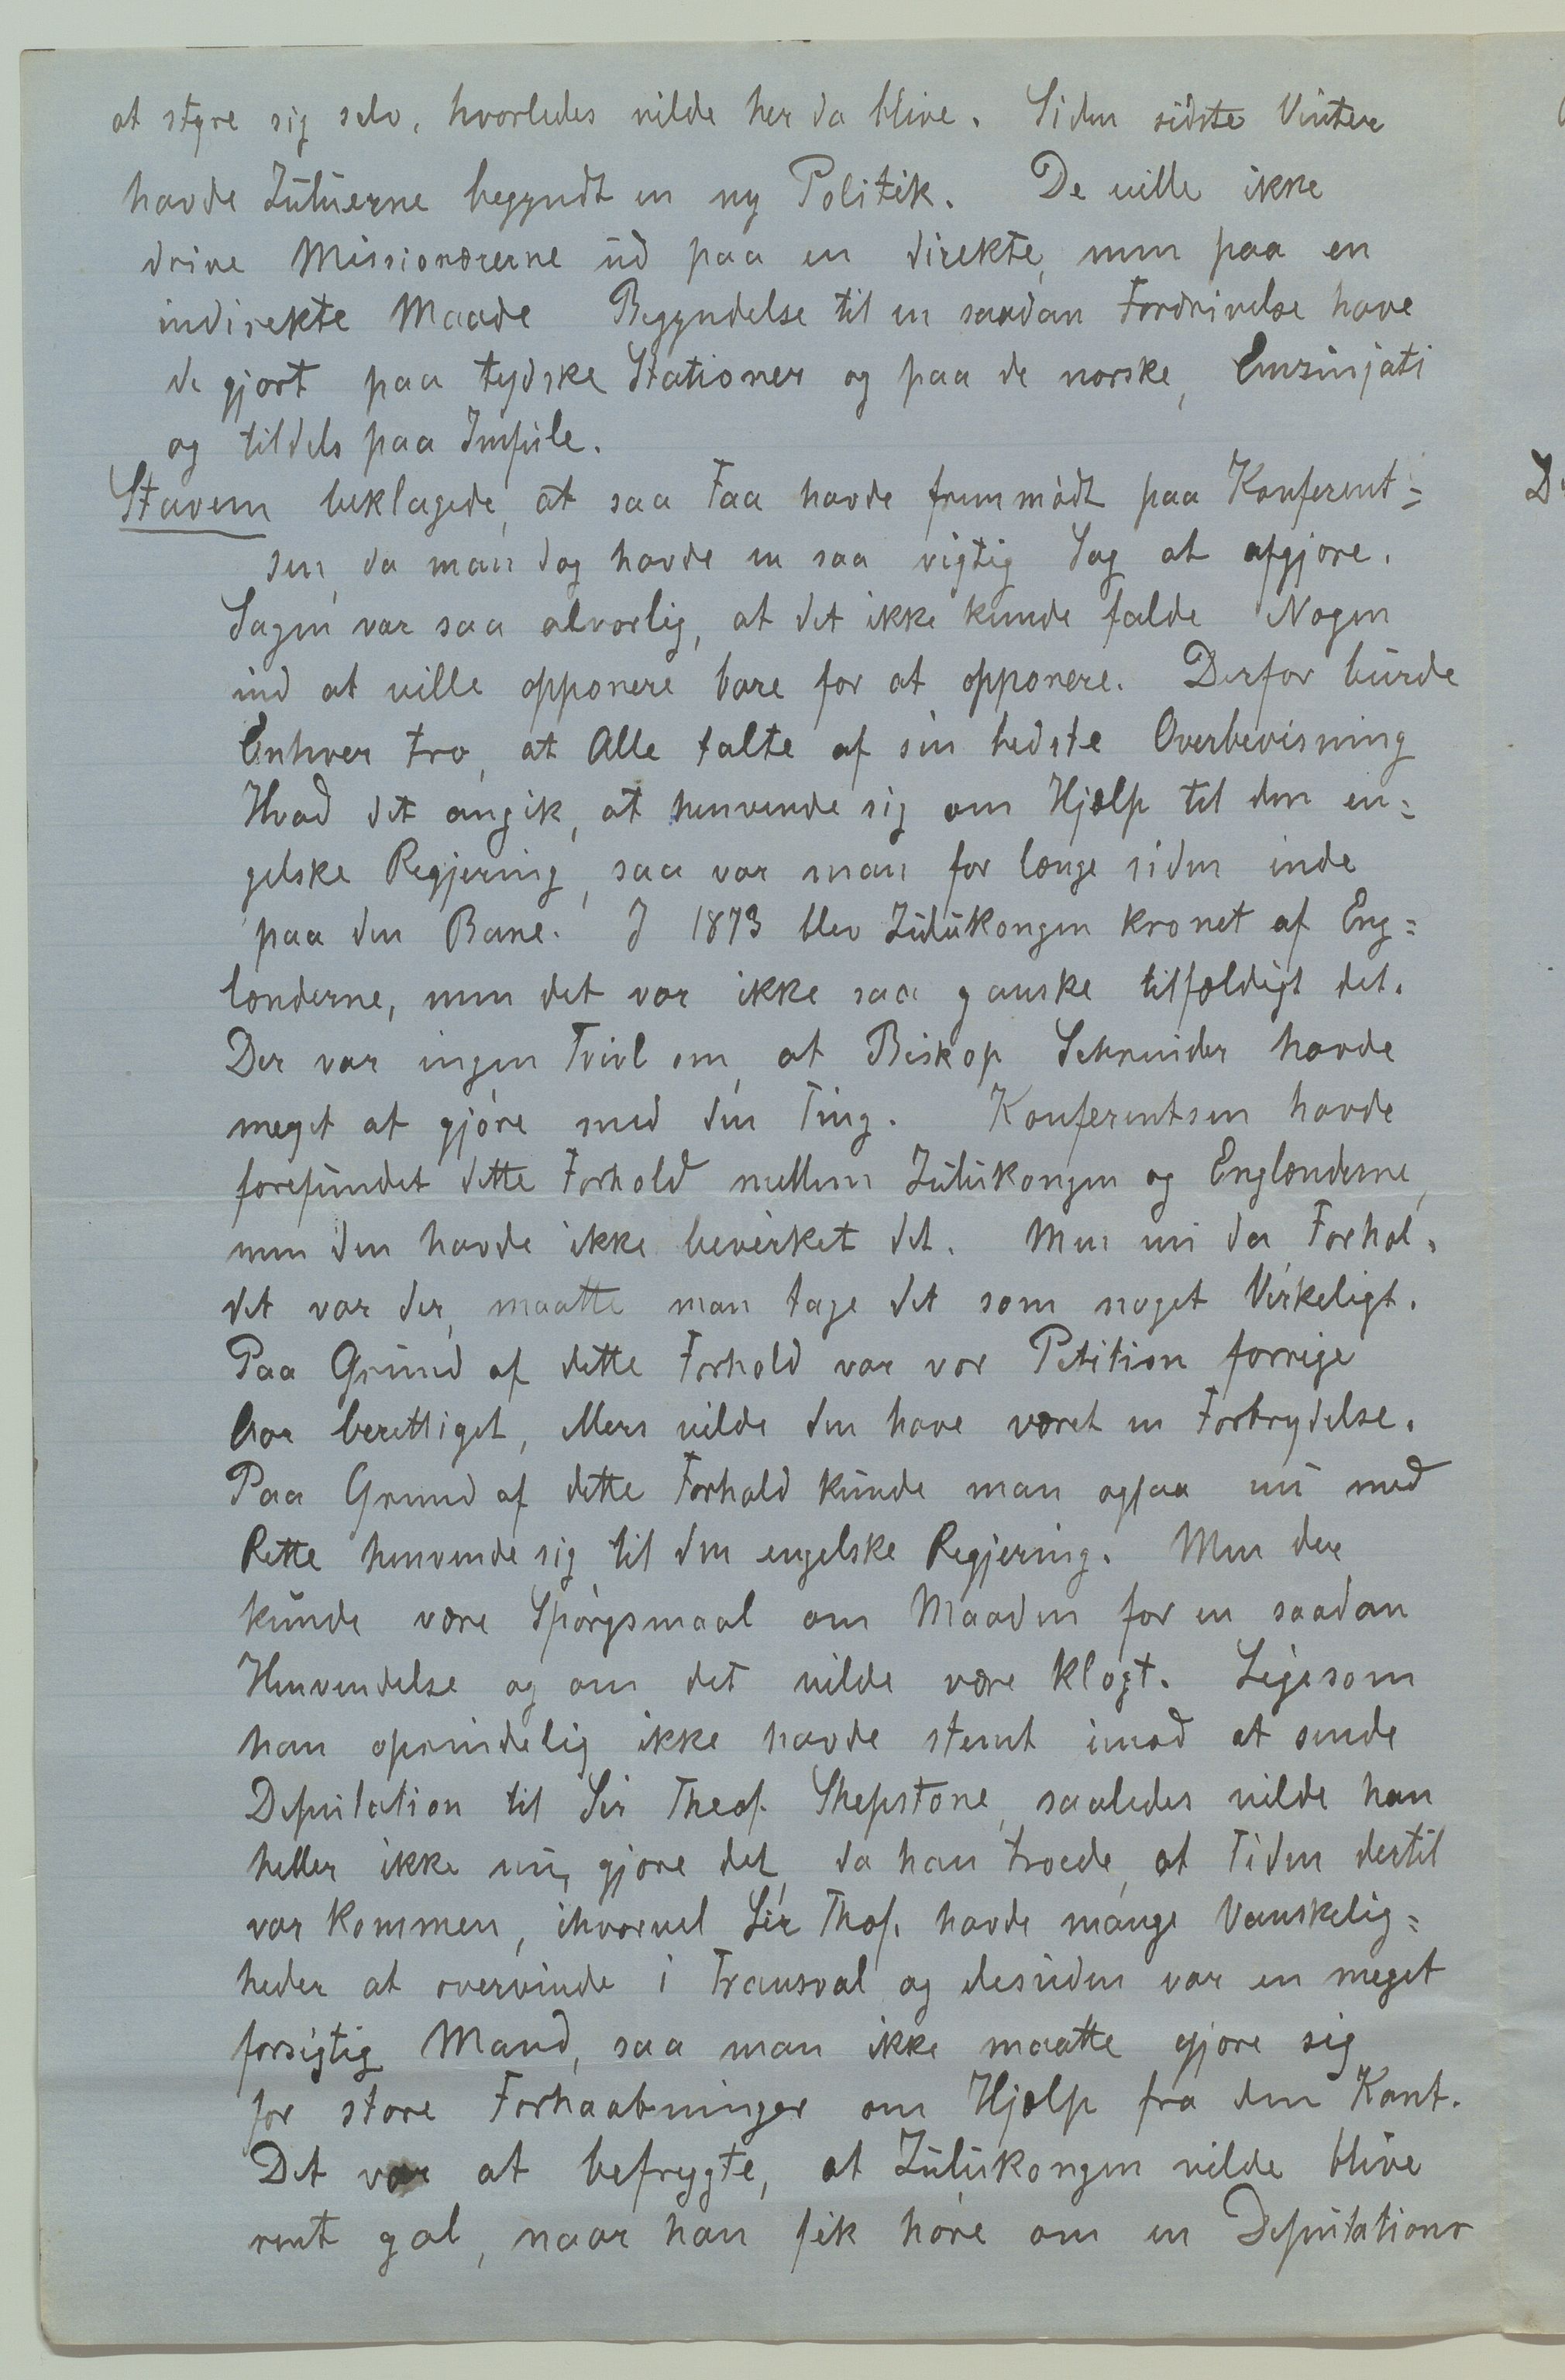 at styre sig selv, hvorledes vilde her da blive. Siden sidste Vinter
havde Zuluerne begyndt en ny Politik. De ville ikke
drive Missionærerne ud paa en direkte, men paa en
indirekte Maade Begyndelse til en saadan Fordrivelse have
de gjort paa tydske Stationer og paa de norske, Emzinjati
og tildels paa Imfule.
Stavem beklagede, at saa Faa havde fremmødt paa Konferent=
sen, da man dog havde en saa vigtig Sag at afgjøre.
Sagen var saa alvorlig, at det ikke kunde falde Nogen
ind at ville opponere bare for at opponere. Derfor burde
Enhver tro, at Alle talte af sin bedste Overbevisning
Hvad det angik, at henvende sig om Hjælp til den en=
gelske Regjering, saa var man for længe siden inde
paa den Bane. I 1873 blev Zulukongen kronet af Eng=
lænderne, men det var ikke saa ganske tilfældigt det.
Der var ingen Tvivl om, at Biskop Schreuder havde
meget at gjøre med den Ting. Konferentsen havde
forefundet dette Forhold mellem Zulukongen og Englænderne,
men den havde ikke bevirket det. Men nu da Forhol=
det var der, maatte man tage det som noget Virkeligt.
Paa Grund af dette Forhold var vor Petition forrige
Aar berettiget, ellers vilde den have været en Forbrydelse.
Paa Grund af dette Forhold kunde man ogsaa nu med
Rette henvende sig til den engelske Regjering. Men der
kunde være Spørgsmaal om Maaden for en saadan
Henvendelse og om det vilde være klogt. Ligesom
han oprindelig ikke havde stemt imod at sende
Deputation til Sir Theof. Shepstone, saaledes vilde han
heller ikke nu gjøre det, da han troede, at Tiden dertil
var kommen, ihvorvel Sir Thof. havde mange Vanskelig=
heder at overvinde i Transval og desuden var en meget
forsigtig Mand, saa man ikke maatte gjøre sig
for store Forhaabninger om Hjælp fra den Kant.
Det var at befrygte, at Zulukongen vilde blive
rent gal, naar han fik høre om en Deputations